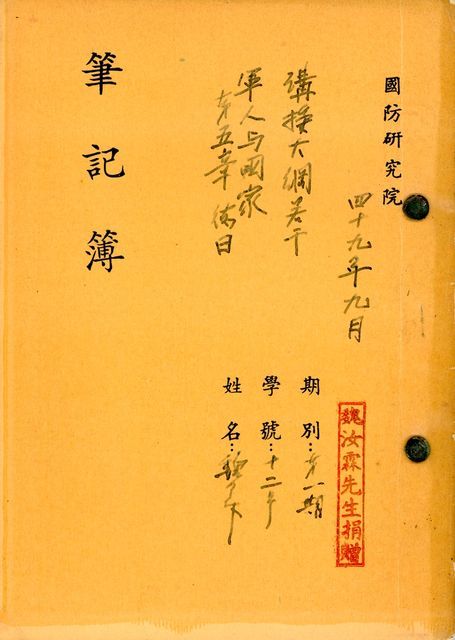 國防研究院
四十九年九月
講授大綱若干
軍人与國家
第五章
筆記簿
期別：第一期
學號：十二号
姓名：
魏汝霖先生捐贈